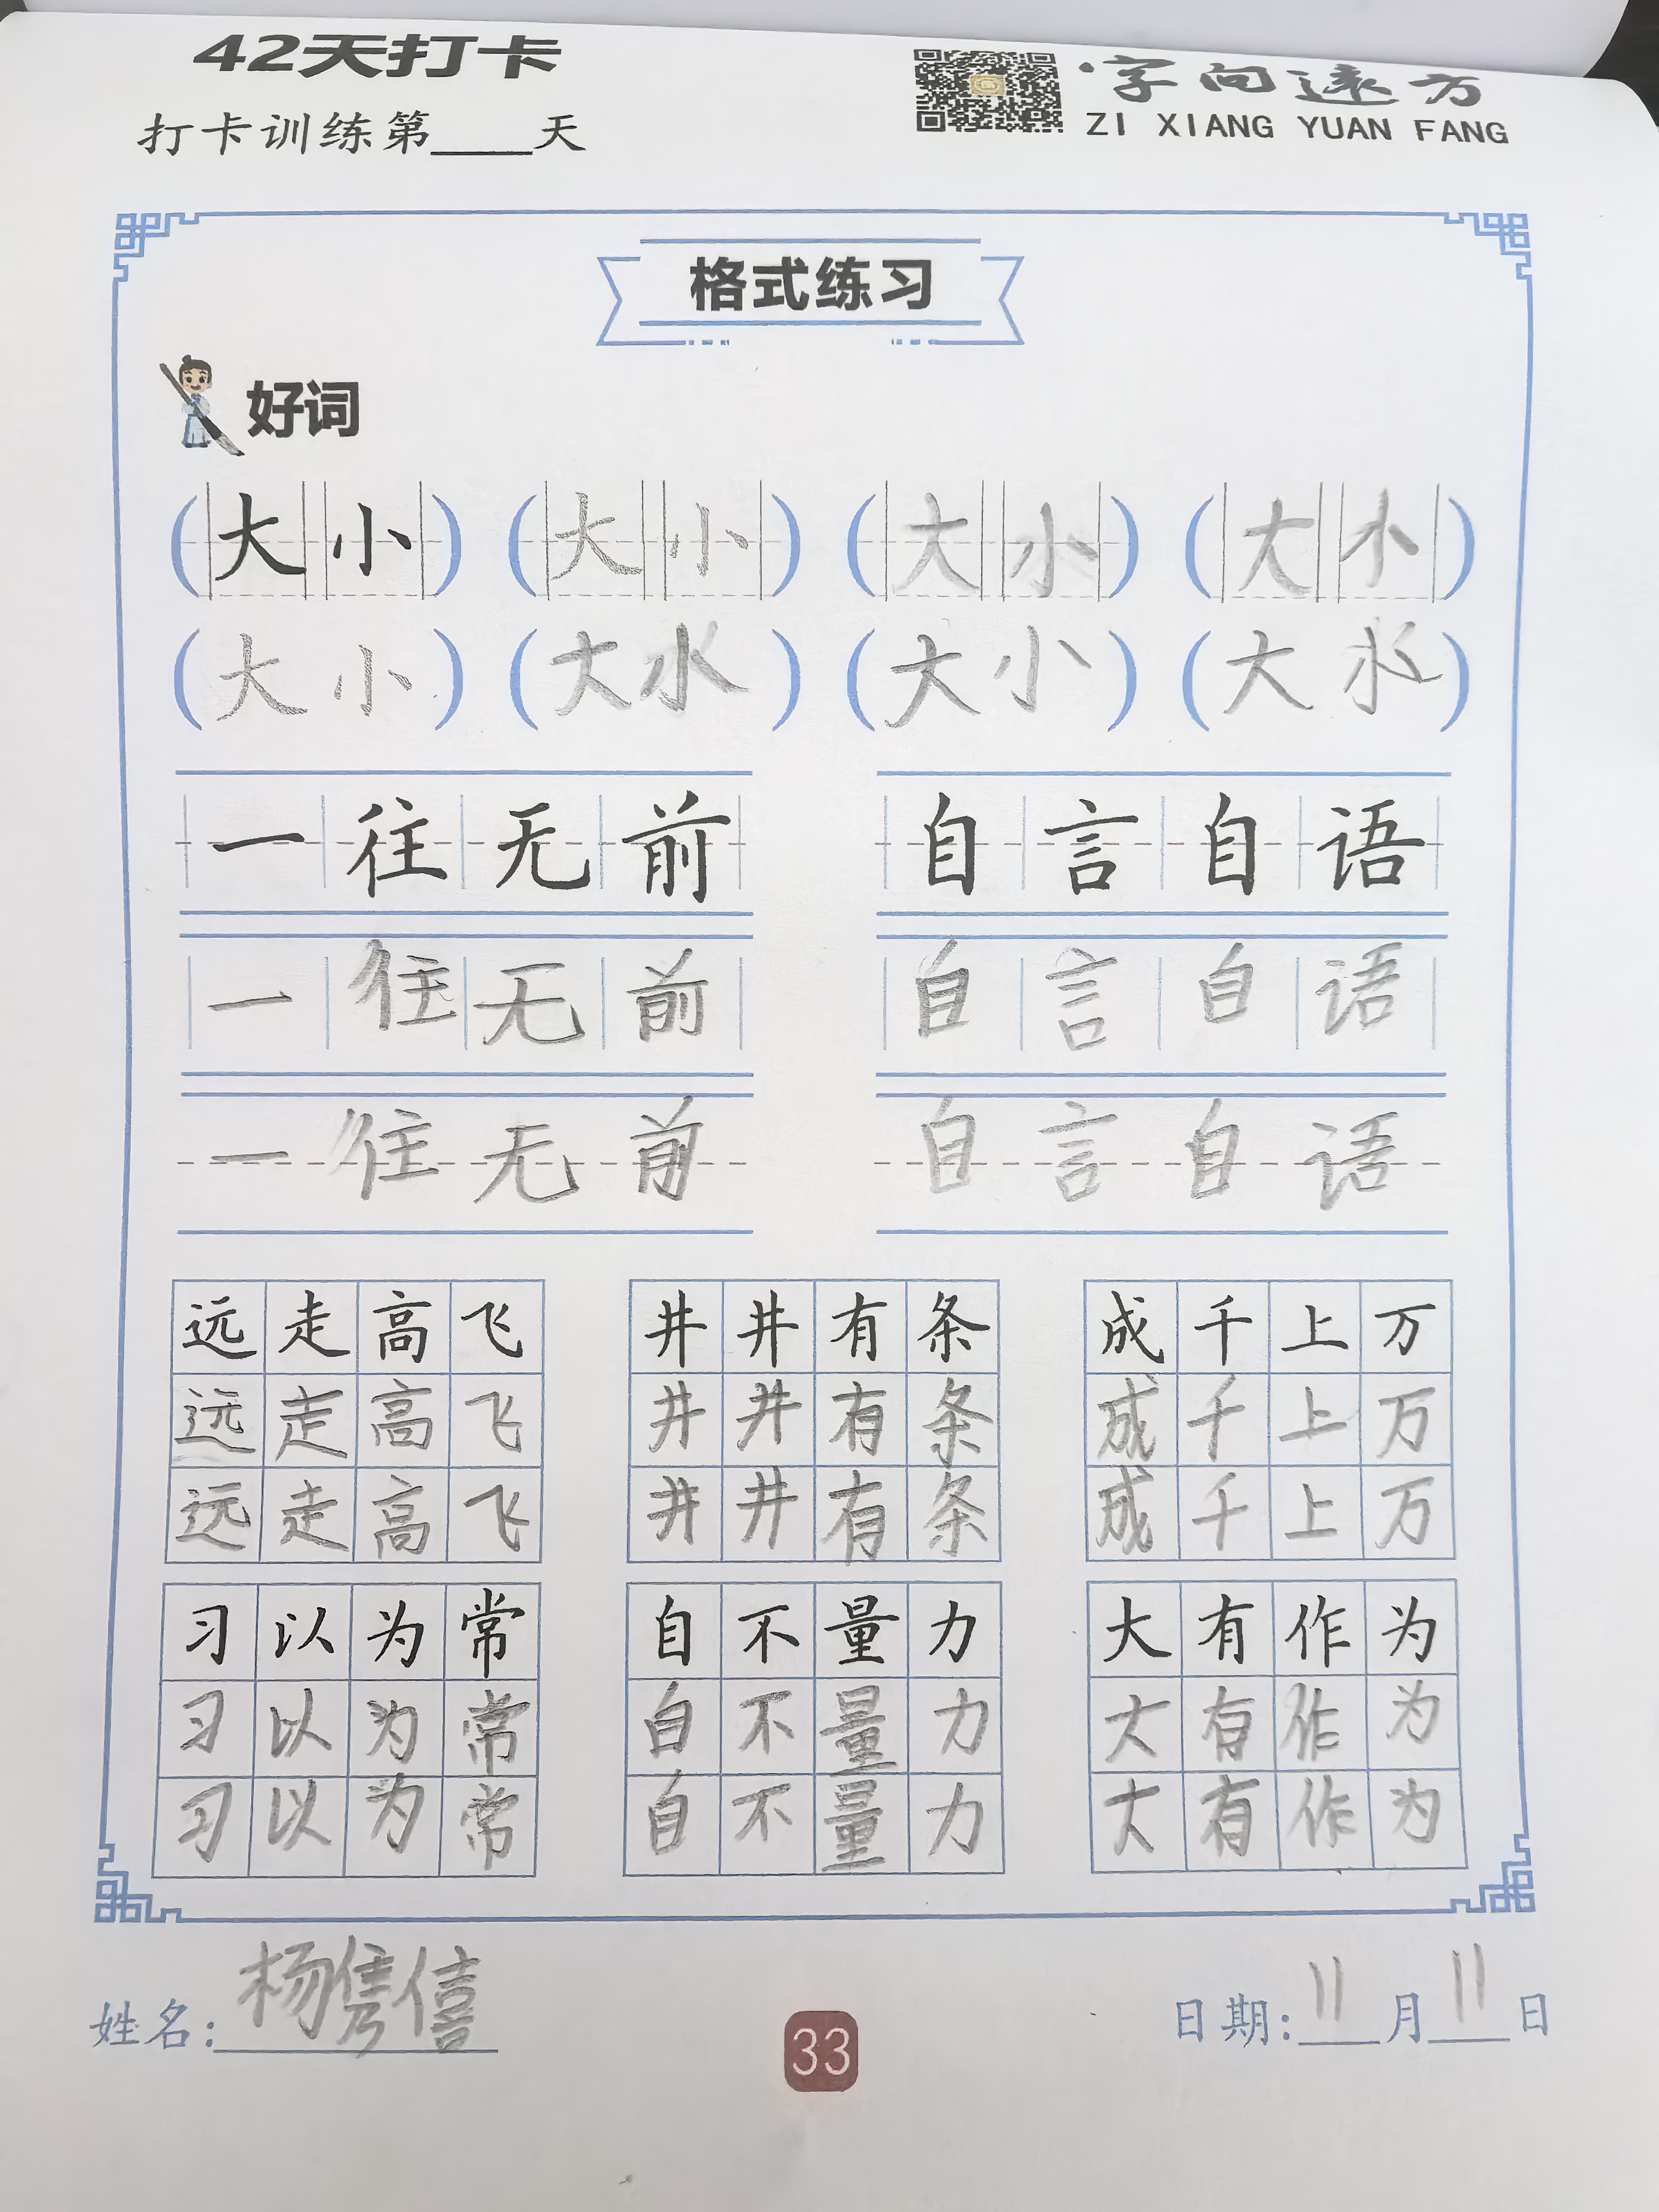 42天打卡
打卡训练第____天
字向远方
ZI XIANG YUAN FANG
格式练习
好词
(大小) (大小) (大小) (大小)
(大小) (大水) (大小) (大水)
一往无前 自言自语
一往无前 自言自语
一往无前 自言自语
远走高飞 井井有条 成千上万
远走高飞 井井有条 成千上万
远走高飞 井井有条 成千上万
习以为常 自不量力 大有作为
习以为常 自不量力 大有作为
习以为常 自不量力 大有作为
姓名:杨隽僖
日期:11月11日
33